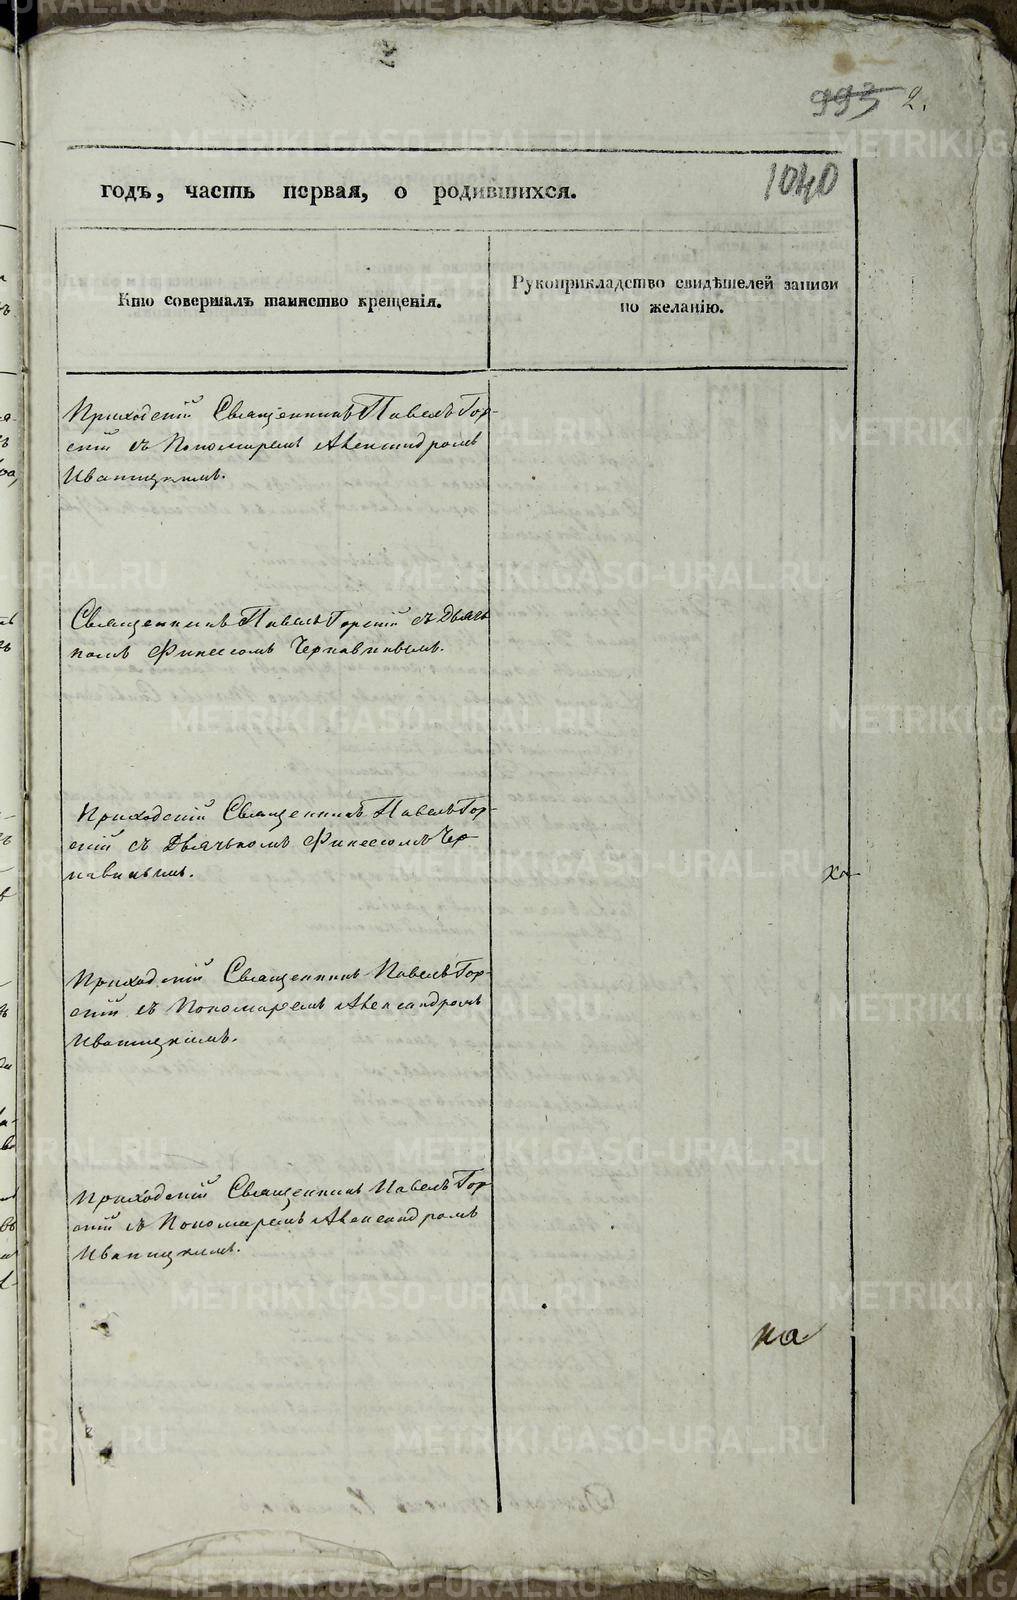 993 2.
1040
годъ, часть первая, о родившихся.
Кто совершалъ таинство крещенія.
Рукоприкладство свидѣтелей записи
по желанію.
Приходскій Священникъ Павелъ Гор-
скій съ Пономаремъ Александромъ
Иваницкимъ.
Священникъ Павелъ Горскій съ Дьяч-
комъ Финеесомъ Чернавинымъ.
Приходскій Священникъ Павелъ Гор-
скій съ Дьячькомъ Финеесомъ Чер-
навинымъ.
Приходскій Священникъ Павелъ Гор-
скій съ Пономаремъ Александромъ
Иваницкимъ.
Приходскій Священникъ Павелъ Гор-
скій съ Пономаремъ Александромъ
Иваницкимъ.
на
METRIKI.GASO-URAL.RU